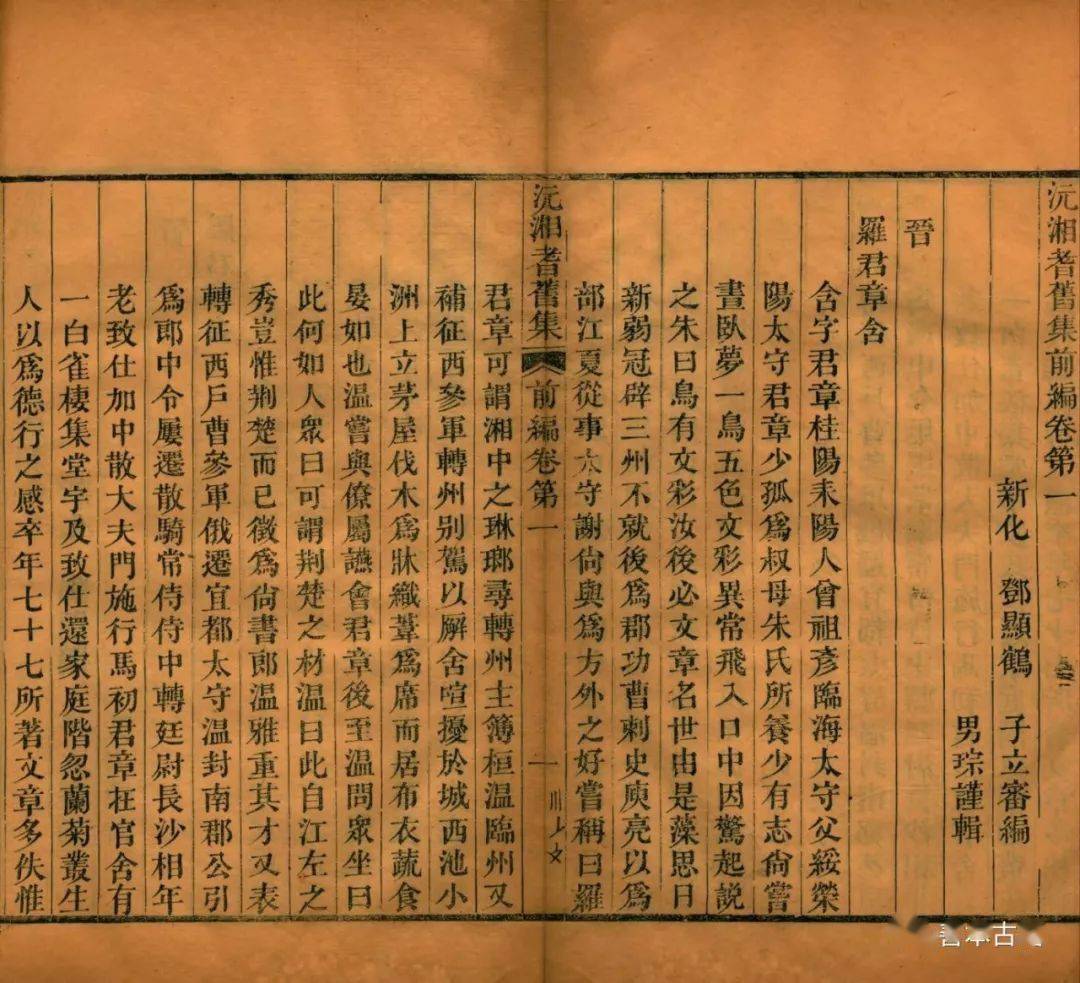 沅湘耆舊集前編卷第一
新化 鄧顯鶴 子立審編
男琮謹輯
晉
羅君章含
含字君章桂陽耒陽人曾祖彥臨海太守父綏滎
陽太守君章少孤爲叔母朱氏所養少有志尙嘗
晝臥夢一鳥五色文彩異常飛入口中因驚起說
之朱曰鳥有文彩汝後必文章名世由是藻思日
新弱冠辟三州不就後爲郡功曹刺史庾亮以爲
部江夏從事太守謝尙與爲方外之好嘗稱曰羅
沅湘耆舊集
前編卷第一
一
君章可謂湘中之琳瑯尋轉州主簿桓温臨州又
補征西參軍轉州别駕以廨舍喧擾於城西池小
洲上立茅屋伐木爲牀織葦爲席而居布衣蔬食
晏如也温嘗與僚屬讌會君章後至温問眾坐曰
此何如人眾曰可謂荆楚之材温曰此自江左之
秀豈惟荆楚而已徵爲尙書郎温雅重其才又表
轉征西戶曹參軍俄遷宜都太守温封南郡公引
爲郎中令屢遷散騎常侍侍中轉廷尉長沙相年
老致仕加中散大夫門施行馬初君章在官舍有
一白雀棲集堂宇及致仕還家庭階忽蘭菊叢生
人以爲德行之感卒年七十七所著文章多佚惟